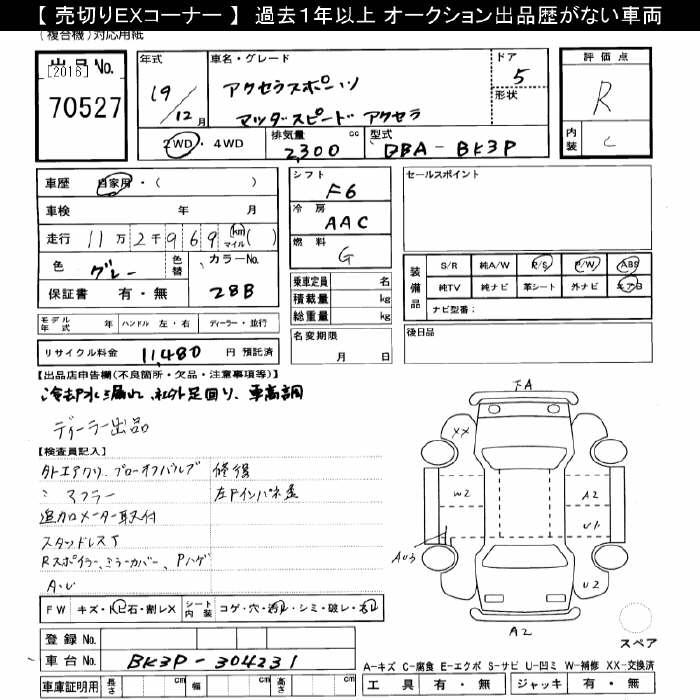 【 売切りEXコーナー 】 過去1年以上 オークション出品歴がない車両
(複合機)対応用紙
出品 No. [2016] 70527
年式 19/12月
車名・グレード アクセラスポーツ マツダスピード アクセラ
ドア 5
形状
評価点 R
内装 C
2WD・4WD
排気量 2,300 cc
型式 DBA-BK3P
車歴 自家用・( )
車検 年 月
走行 11万2千969 km マイル ( )
色 グレー 色替 カラーNo. 28B
保証書 有・無
モデル年式 年 ハンドル 左・右 ディーラー・並行
リサイクル料金 11,480 円 預託済
シフト F6
冷房 AAC
燃料 G
乗車定員 名
積載量 kg
総重量 kg
名変期限 月 日
セールスポイント
装備品 S/R 純A/W P/S P/W ABS
純TV 純ナビ 革シート 外ナビ エアB
ナビ型番:
後日品
【出品店申告欄(不良箇所・欠品・注意事項等)】
冷却水漏れ、社外足回り、車高調
ディーラー出品
【検査員記入】
外エアクリ、ブローオフバルブ
〃 マフラー
追加メーター取付
スタッドレスT
Rスポイラー、ミラーカバー、Pハゲ
A・U
修復
左Fインパネ歪
FW キズ・トビ石・割レX シート内装 コゲ・穴・汚レ・シミ・破レ・スレ
登録 No.
車台 No. BK3P-304231
車庫証明用 長さ cm 幅 cm 高さ cm
FA
XX
W2
A2
U1
AU3
U2
A2
スペア
A-キズ C-腐食 E-エクボ S-サビ U-凹ミ W-補修 XX-交換済
工具 有・無 ジャッキ 有・無